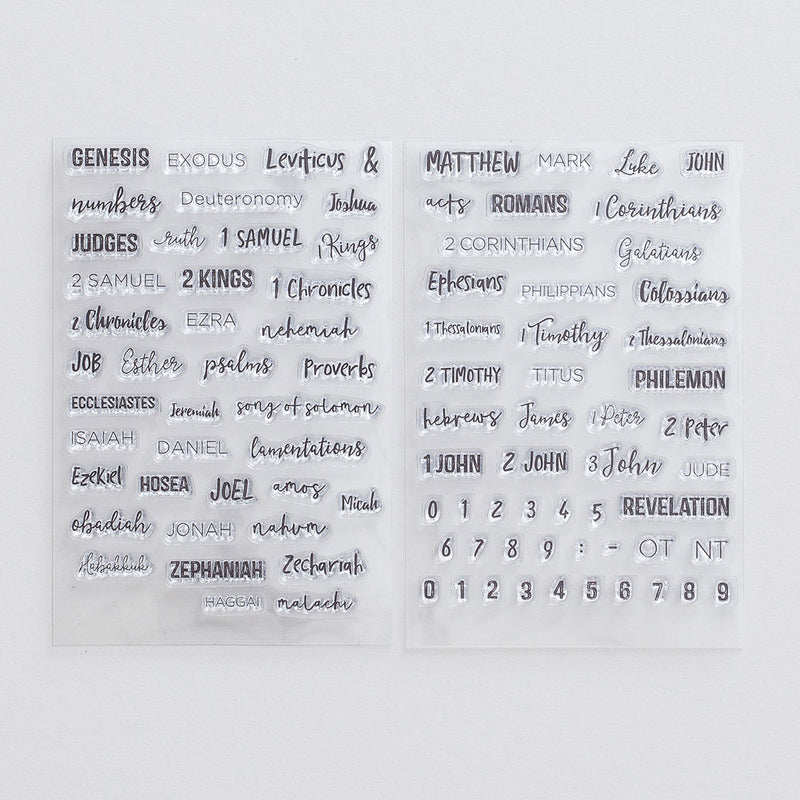 GENESIS EXODUS Leviticus &
numbers Deuteronomy Joshua
JUDGES ruth 1 SAMUEL 1 Kings
2 SAMUEL 2 KINGS 1 Chronicles
2 Chronicles EZRA nehemiah
JOB Esther psalms Proverbs
ECCLESIASTES Jeremiah song of solomon
ISAIAH DANIEL lamentations
Ezekiel HOSEA JOEL amos Micah
obadiah JONAH nahum
Habakkuk ZEPHANIAH Zechariah
HAGGAI malachi
MATTHEW MARK Luke JOHN
acts ROMANS 1 Corinthians
2 CORINTHIANS Galatians
Ephesians PHILIPPIANS Colossians
1 Thessalonians 1 Timothy 2 Thessalonians
2 TIMOTHY TITUS PHILEMON
hebrews James 1 Peter 2 Peter
1 JOHN 2 JOHN 3 John JUDE
0 1 2 3 4 5 REVELATION
6 7 8 9 : - OT NT
0 1 2 3 4 5 6 7 8 9